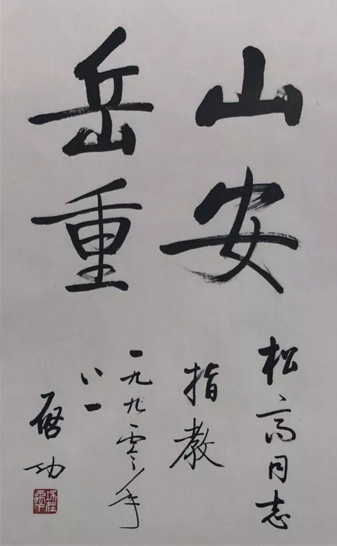 山安
岳重
松高同志
指教
一九九零年
八一
啓功